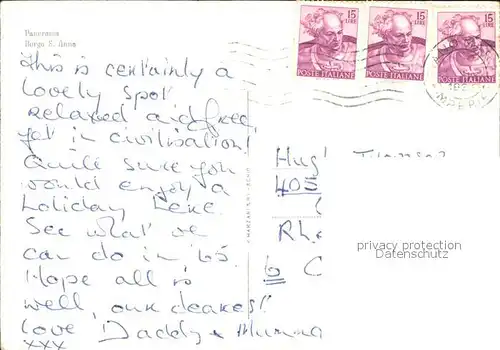 Panorama
Borgo S. Anna
This is certainly a
lovely spot
relaxed and free,
yet in civilisation!
Quite sure you
would enjoy a
holiday here.
See what we
can do in '65.
Hope all is
well, our dearest!
Love Daddy & Mummy
xxx
15
LIRE
POSTE ITALIANE
15
LIRE
POSTE ITALIANE
15
LIRE
POSTE ITALIANE
Hug
405
Rh
6 C
privacy protection
Datenschutz